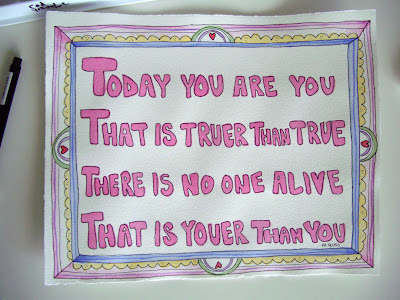 TODAY YOU ARE YOU
THAT IS TRUER THAN TRUE
THERE IS NO ONE ALIVE
THAT IS YOUER THAN YOU
DR. SEUSS